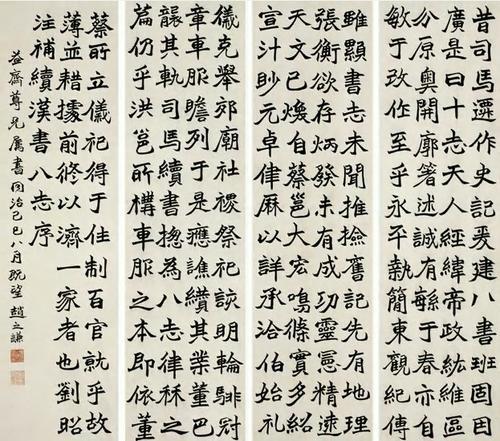 昔司馬遷作史記爰建八書班固因
廣是曰十志天人經緯帝政紘維區
分原奧開廓箸述誠有緐于春亦自
敏于改作至乎永平執簡東觀紀傳
雖顯書志未聞推撿舊記先有地理
張衡欲存炳發未有成功靈憲精遠
天文已煥自蔡邕大宏鳴條實多紹
宣汁眇元卓律厤以詳承洽伯始礼
儀克舉郊廟社稷祭祀該明輪騑冠
章車服贍列于是應譙纘其業董巴
襲其軌司馬續書揔為八志律秝之
篇仍乎洪邕所構車服之本即依董
蔡所立儀祀得于往制百官就乎故
薄並耤據前修以濟一家者也劉昭
注補續漢書八志序
益齋尊兄屬書同治己巳八月既望趙之謙